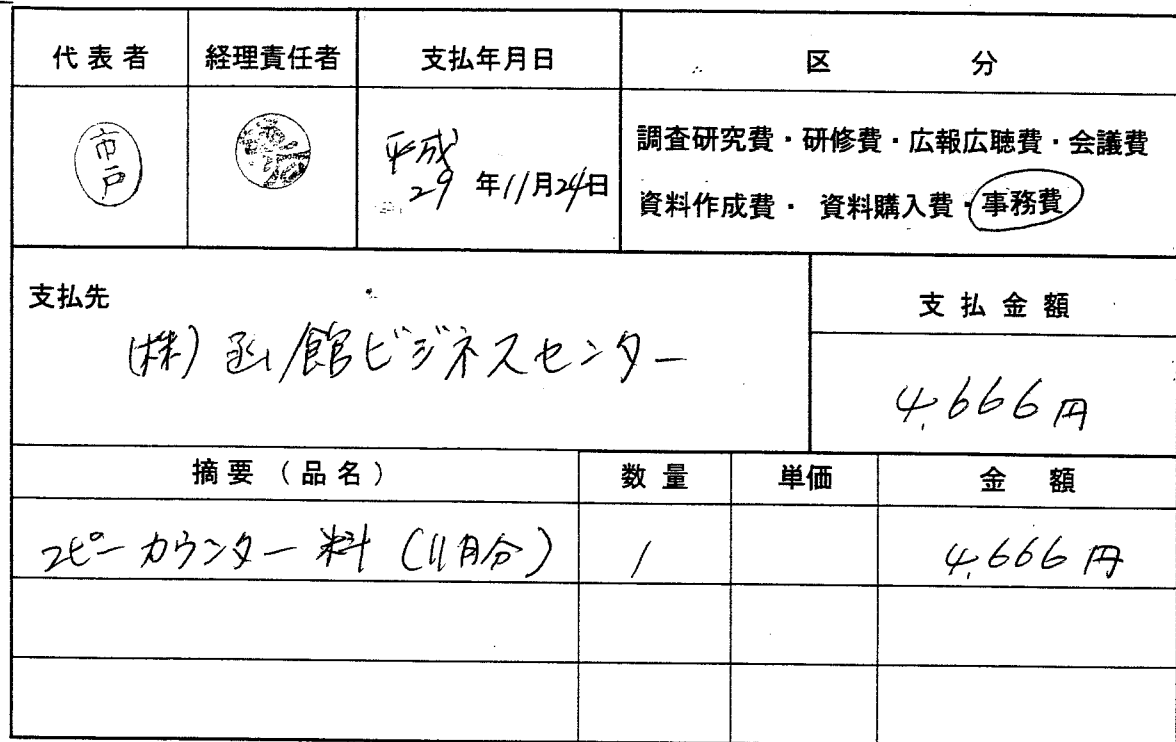 代表者 経理責任者 支払年月日 区 分
市戸
平成
29 年11月24日
調査研究費・研修費・広報広聴費・会議費
資料作成費・ 資料購入費・事務費
支払先
(株)函館ビジネスセンター
支払金額
4,666円
摘要(品名) 数量 単価 金 額
コピーカウンター料(11月分) 1 4,666円